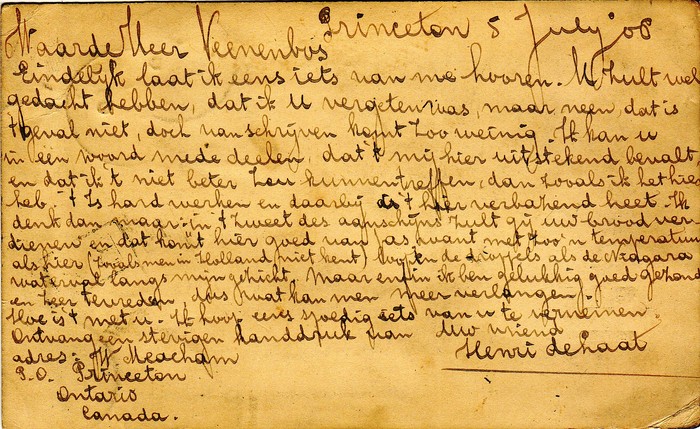 Princeton 5 July '08
Waarde Heer Veenenbos
Eindelijk laat ik eens iets van me hooren. U hult wel
gedacht hebben, dat ik U vergeten was, maar neen, dat is
't geval niet, doch van schrijven komt zoo weinig. Ik kan u
in een woord mede deelen, dat 't mij hier uitstekend bevalt
en dat ik 't niet beter zou kunnen treffen, dan zooals ik het hier
heb. 't Is hard werken en daarbij is 't hier verbazend heet. Ik
denk dan maar: in 't zweet des aanschijns zult gij uw brood ver
dienen en dat komt hier goed van pas want met zoo'n temperatuur
als hier (zooals men in Holland niet kent) loopen de droppels als de Niagara
waterval langs mijn gezicht. Maar enfin ik ben gelukkig goed gezond
en zeer tevreden, dus wat kan men meer verlangen.
Hoe is 't met u. Ik hoop eens spoedig iets van u te vernemen.
Ontvang een stevigen handdruk van Uw vriend
Henri de Haat
adres: W Meacham
P.O. Princeton
Ontario
Canada.